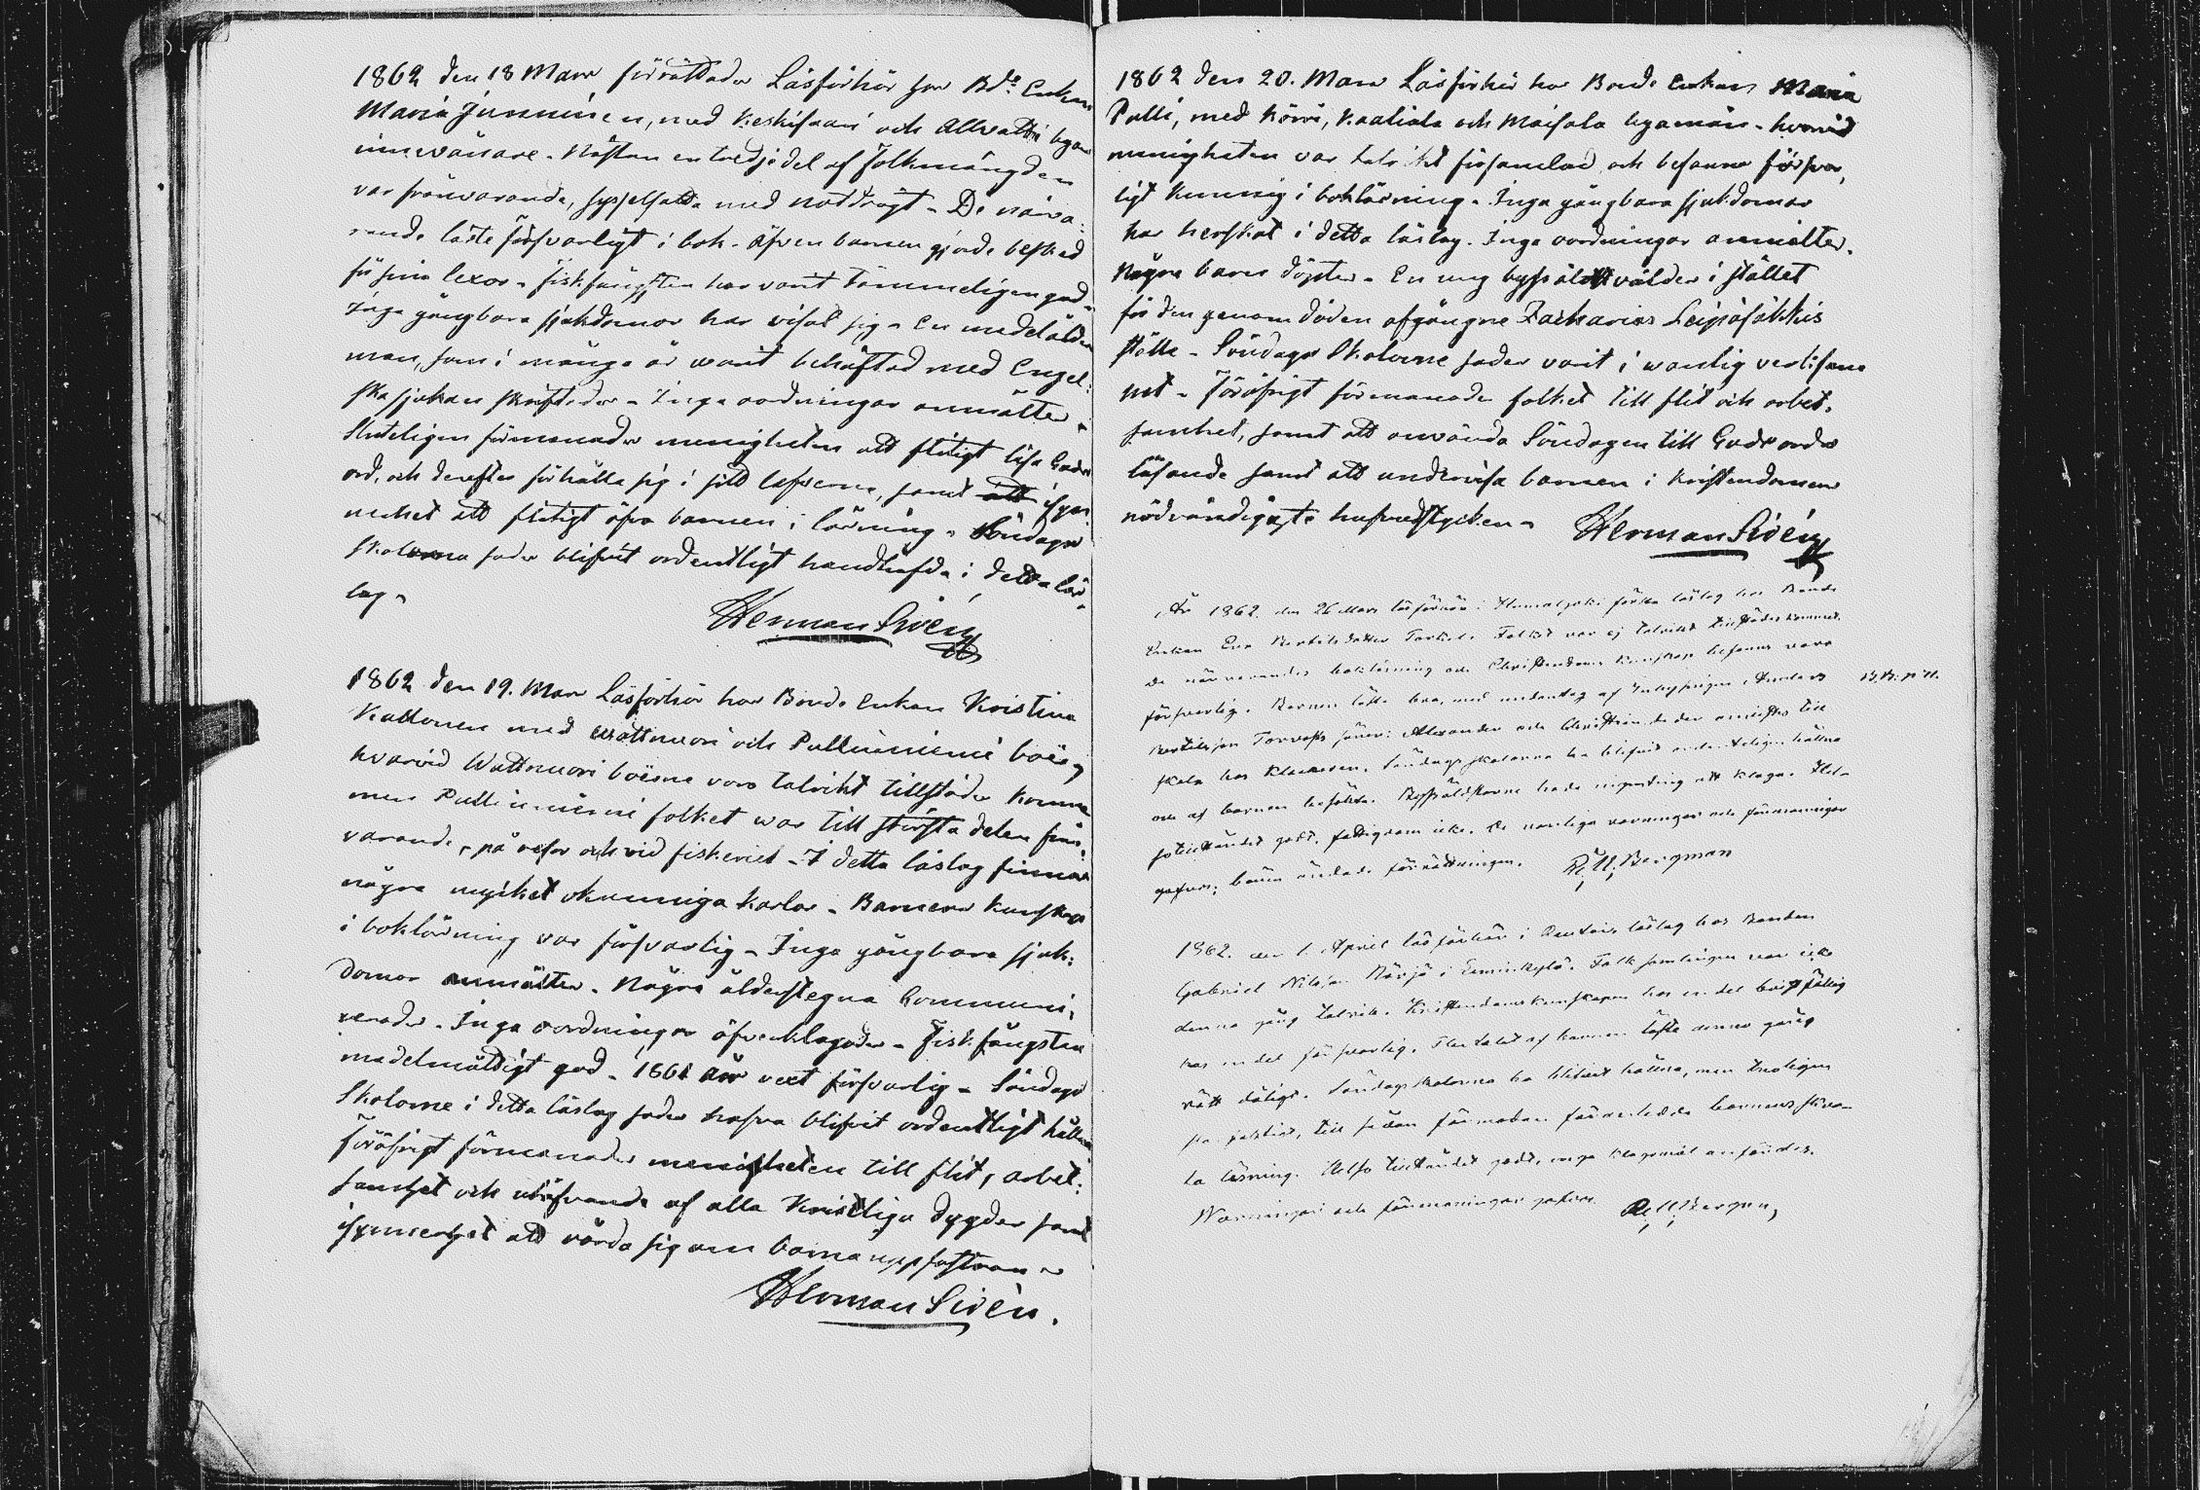 1862 den 18 Mars förrättades Läsförhör hos Bde Enkan
Maria Junninen, med Keskisaari och Allvattri bya
innevånare. Nästan en tredjedel af folkmängden
var frånvarande, sysselsatta med notdrägt. De närva
rande läste försvarligt i bok. Äfven barnen gjorde besked
för sina lexor. Fiskfångsten har varit tämmeligen god.
Inga gångbara sjukdomar har visat sig. En medelålders
man, som i många år varit behäftad med Engel
ska sjukan skriftades. Inga oordningar anmältes.
Sluteligen förmanades menigheten att flitigt läsa Guds
ord, och derefter förhålla sig i sitt lefverne, samt att i syn
nerhet att flitigt öfva barnen i läsning. Söndags
skolorna sades blifvit ordentligt handhafda i detta läs
lag.
Herman Sivén
1862 den 19. Mars Läsförhör hos Bonde Enkan Kristina
Kallonen med Wättnuori och Pulliniemi boer,
hvarvid Wattnuori boerne voro talrikt tillstädes komne
men Pulliniemi folket war till största delen från
varande, på resor och vid fiskeriet. I detta läslag finnas
några mycket okunniga karlar. Barnens kunskap
i boklärning var försvarlig. Inga gångbara sjuk
domar anmältes. Några ålderstegna Communi
cerades. Inga oordningar öfverklagades. Fiskfångsten
medelmåttigt god. 1861 års vext försvarlig. Söndags
Skolorne i detta läslag sades hafva blifvit ordentligt hållne
Föröfrigt förmanades menigheten till flit, arbet
samhet och utöfvande af alla Kristliga dygder samt
isynnerhet att vårda sig om barna uppfostran
Herman Sivén.
1862 den 20. Mars Läsförhör hos Bonde Enkan Maria
Pulli, med Körri, Kaaliala och Maisala byamän. hvarvid
menigheten var talrikt församlad och befanns försvar
ligt kunnig i boklärning. Inga gångbara sjukdomar
har herrskat i detta läslag. Inga oordningar anmältes.
Några barn döptes. En ny bysåldt valdes i stället
för den genom döden afgångne Zacharias
ställe. Söndags Skolorne sades varit i wanlig verksam
het. Föröfrigt förmanades folket till flit och arbet
samhet, samt att använda Söndagen till Guds ords
läsande samt att undervisa barnen i Kristendomens
nödvändigaste hufvudstycken.
Herman Sivén
År 1862 den 26 Mars läsförhör i första läslag hos Bonde
Enkan Eva Folket var ej talrikt tillstädes kommet.
De närvarandes boklärning och Christendoms kunskap befanns vara
försvarlig. Barnen läste bra, med undantag af Inhysingen Anders
söner: Alexander och Christian de der anmältes till
skola hos Klockaren. Söndags skolorna ha blifvit ordenteligen hållna
och af barnen besökta. Byåldstarne hade ingenting att klaga. Hel
sotillståndet godt, De vanliga varningar och förmaningar
gafvos; bönen ändade förrättningen. R. U. Bergman
1862. den 1. April läsförhör i läslag hos Bonden
Gabriel Nilsson Folk samlingen var icke
denna gång talrik. Kristendomskunskapen hos en del bristfällig
hos en del försvarlig. Flertalet af barnen läste denna gång
rätt dåligt. Söndagsskolorna ha blifvit hållna, men
till följden
ta läsning. Helso tillståndet godt, inga klagomål anfördes.
Warningar och förmaningar gafvos. R. U. Bergman,